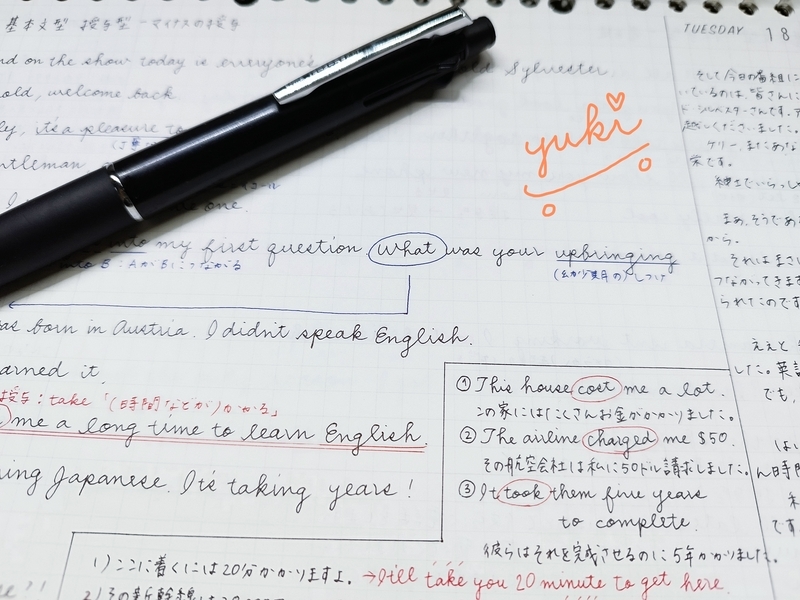 基本文型 授与型 ーマイナスの授与
nd on the show today is everyone's
Sylvester
old, welcome back
ly, it's a pleasure to
ntleman
one.
into my first question what was your upbringing
B : AがBにつながる
(幼少期の)しつけ
as born in Austria. I didn't speak English.
arned it.
授与 : take 「(時間などが)かかる」
me a long time to learn English.
ing Japanese. It's taking years!
① This house cost me a lot.
この家にはたくさんお金がかかりました。
② The airline charged me $50.
その航空会社は私に50ドル請求しました。
③ It took them five years
to complete.
彼らはそれを完成させるのに5年かかりました。
1) ここに着くには20分かかりますよ。→ It'll take you 20 minute to get here.
yuki
TUESDAY 18
そして今日の番組に
いているのは、皆さんに
ド・シルベスターさんです。ア
越しくださいました。
ケリー、またあな
栄です。
紳士でいらっし
まあ、そうであ
から。
それはまさに
つながってきます
られたのです
ええと
した。英語
でも、
はい
ん時間
です